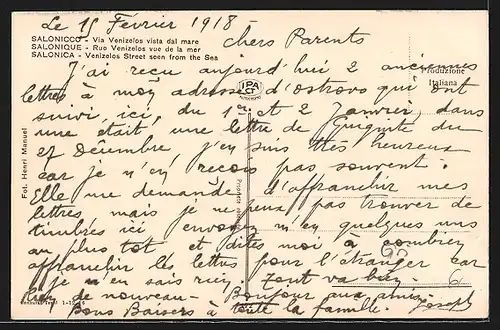 Le 15 Février 1918
Chers Parents
SALONICCO - Via Venizelos vista dal mare
SALONIQUE - Rue Venizelos vue de la mer
SALONICA - Venizelos Street seen from the Sea
Produzione
Italiana
IPA
Fot. Henri Manuel
J'ai reçu aujourd'hui 2 anciennes
lettres à mon adresse d'ostrovo qui ont
suivi, ici, du 1er et 2 Janvier, dans
une était une lettre de Guiguite du
27 Décembre j'en suis très heureux
car je n'en reçois pas souvent.
Elle me demande d'affranchir mes
lettres, mais je ne peux pas trouver de
timbres ici envoyez m'en quelques uns
au plus tôt et dites moi à combien
affranchir les lettres pour l'étranger car
je n'en sais rien Tout va bien
Rien de nouveau - Bonjour aux amis
Bons Baisers à toute la famille. Joseph